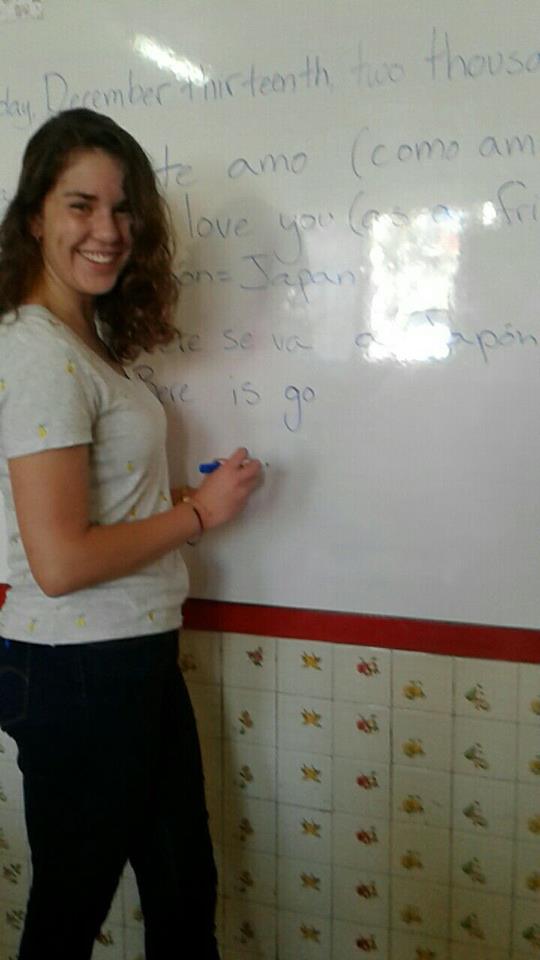 day, December thirteenth, two thousa
te amo (como am
love you (as a fri
ón = Japan
ere se va a Japón
Bere is go